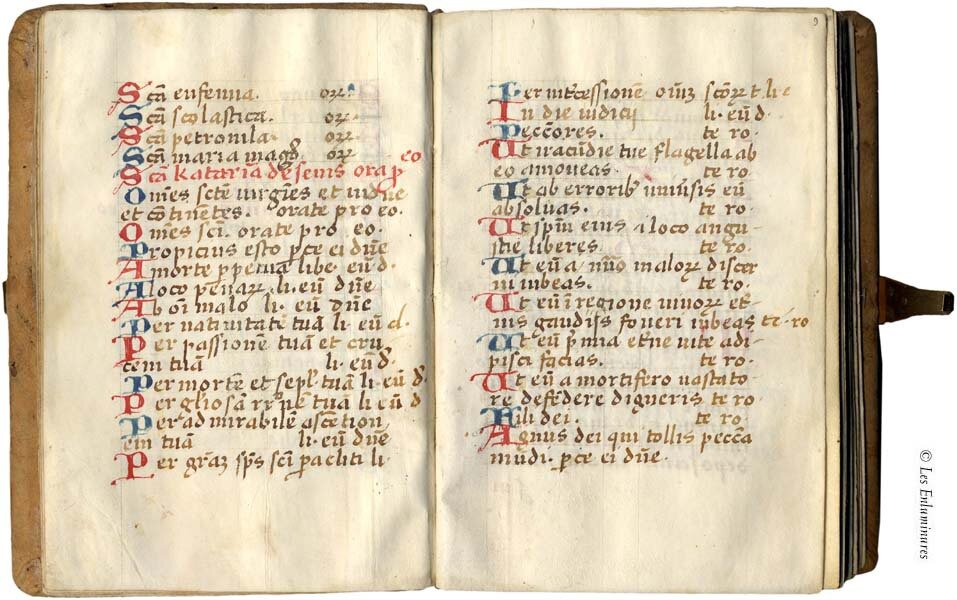 Scā eufemia. or̃.
Scā scolastica. or̃.
Scā petronila. or̃.
Scā maria magd̃. or̃.
Scā Katarīa de senis ora p eo
Om̃es scte uirgĩes et uidue
et cōtinẽtes. orate pro eo.
Omes sci. orate pro eo.
Propicius esto pce ei dñe
A morte ppetua libe. eũ d.
A loco penaꝝ. li. eũ dñe
Ab oi malo li. eũ dñe
Per natiuitatē tuā li. eũ d.
Per passionē tuam et cru
cem tuā li. eũ d.
Per mortē et sepl. tuā li. eũ d.
Per gliosā rr̃nē tuā li. eũ d
Per admirabilē ascētion
em tuā li. eũ dñe
Per graz sp̃s scī paclíti li
9
Per ītercessionē oīuz scōꝝ t. li e
In die iudicij li. eũ d.
Peccōres. te ro.
Ut iracūdie tue flagella ab
eo amoueas. te ro.
Ut ab errorib uniūsis eũ
absoluas. te ro.
Ut ip̃m eius a loco angu
stie liberes. te ro.
Ut eũ a nūo maloꝝ discer
ni iubeas. te ro.
Ut eũ ī regione uiuoꝝ et
nis gaudijs foueri iubeas te ro
Ut eũ pmia etne uite adi
pisci facias. te ro.
Ut eũ a mortifero uastato
re defēdere digneris te ro.
Fili dei. te ro.
Agnus dei qui tollis pecca
mūdi. pce ei dñe.
© Les Enluminures